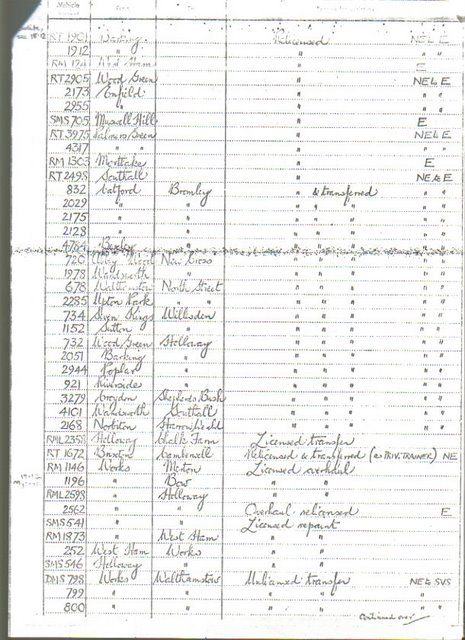 Vehicle From To
RT 1901 Barking. Relicensed NE & E
1912 " " " "
RM 124 West Ham " E
RT 2905 Wood Green " NE & E
2173 Enfield " " "
2955 " " " "
SMS 705 Muswell Hill " E
RT 3975 Palmers Green " NE & E
4317 " " " " "
RM 1303 Mortlake " E
RT 2498 Southall " NE & E
832 Catford Bromley " & transferred " "
2029 " " " " " " "
2175 " " " " " " "
2128 " " " " " " "
Bexley " " " " " "
720 Abbey Wood New Cross " " " " "
1978 Wandsworth " " " " " "
678 Walthamstow North Street " " " " "
2285 Upton Park " " " " " " "
734 Seven Kings Willesden " " " " "
1152 Sutton " " " " " "
732 Wood Green Holloway " " " " "
2051 Barking " " " " " "
2944 Poplar " " " " " "
921 Riverside " " " " " "
3279 Croydon Shepherds Bush " " " " "
4101 Walworth Southall " " " " "
2168 Norbiton Stamford Hill " " " " "
RML 2358 Holloway Chalk Farm Licensed transfer
RT 1672 Brixton Camberwell Relicensed & transferred (as PRIV. TRAINER) NE
RM 1146 Works Merton Licensed overhaul
1196 " Bow " "
RML 2598 " Holloway " "
2562 " " Overhaul relicensed E
SMS 541 " " Licensed repaint
RM 1873 " West Ham " "
252 West Ham Works " "
SMS 546 Holloway " " "
DMS 798 Works Walthamstow Unlicensed transfer NE & SVS
799 " " " " " "
800 " " " " " "
continued over